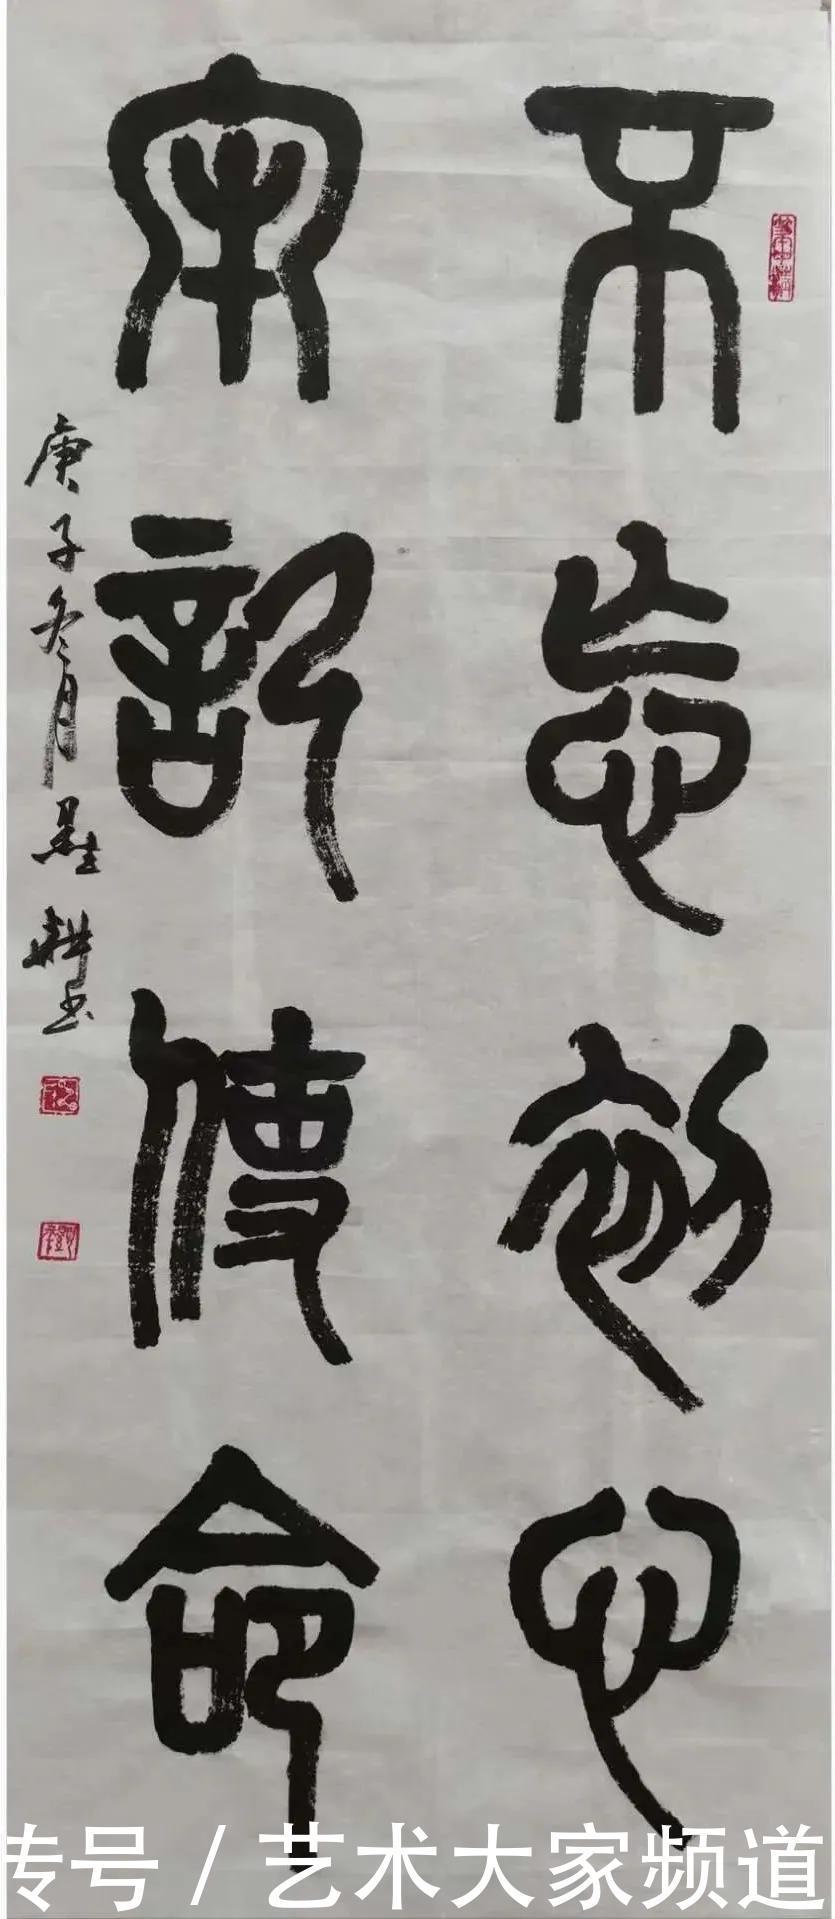 不忘初心
牢記使命
庚子冬月墨耕书
传号 / 艺术大家频道